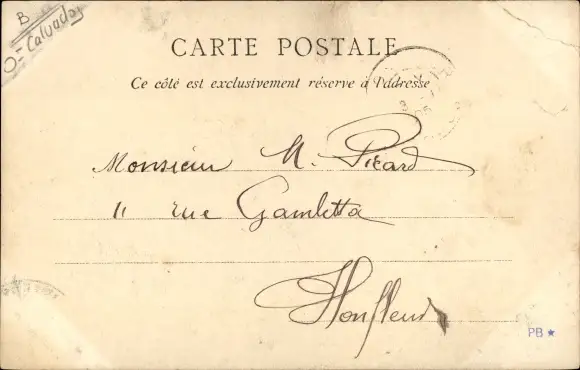 B
O= Calvados
CARTE POSTALE
Ce côté est exclusivement réservé à l'adresse
Monsieur M. Picard
11 rue Gambetta
Honfleur
PB ★